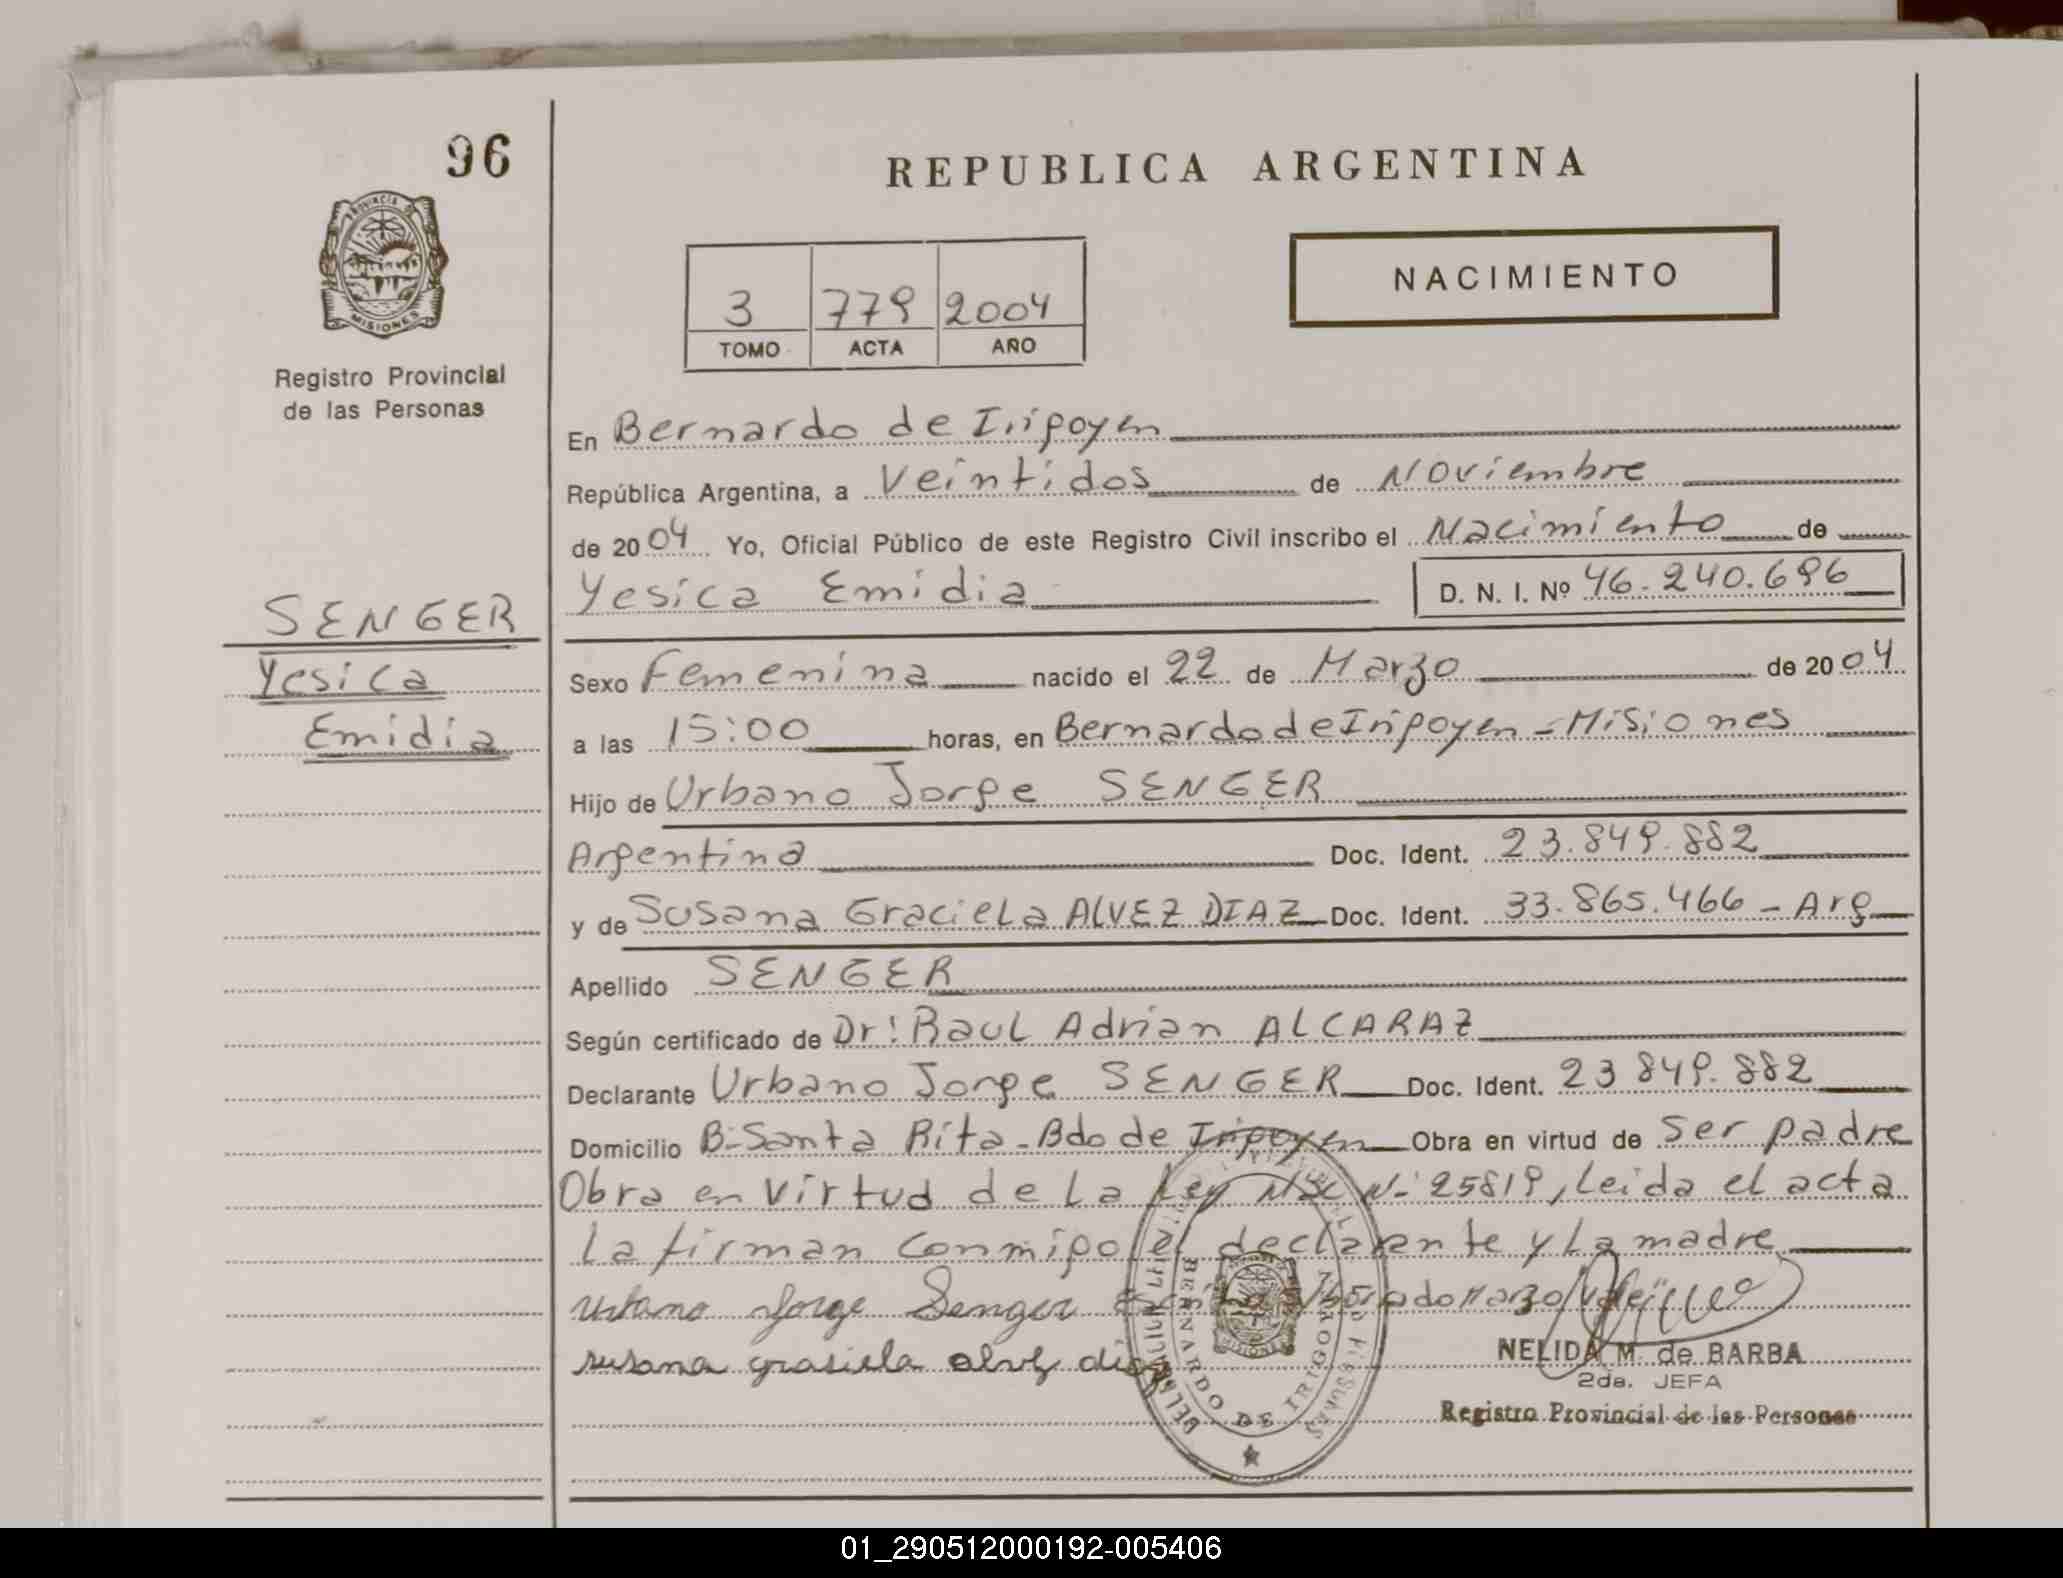 96
REPUBLICA ARGENTINA
PROVINCIA DE
MISIONES
Registro Provincial
de las Personas
NACIMIENTO
3 779 2004
TOMO ACTA AÑO
En Bernardo de Irigoyen
República Argentina, a Veintidos de Noviembre
de 2004 Yo, Oficial Público de este Registro Civil inscribo el Nacimiento de
Yesica Emidia D. N. I. Nº 46.240.696
SENGER
Yesica
Emidia
Sexo Femenina nacido el 22 de Marzo de 2004
a las 15:00 horas, en Bernardo de Irigoyen - Misiones
Hijo de Urbano Jorge SENGER
Argentina Doc. Ident. 23.849.882
y de Susana Graciela ALVEZ DIAZ Doc. Ident. 33.865.466 - Arg
Apellido SENGER
Según certificado de Dr: Raul Adrian ALCARAZ
Declarante Urbano Jorge SENGER Doc. Ident. 23 849.882
Domicilio B- Santa Rita - Bdo de Irigoyen Obra en virtud de Ser padre
Obra en Virtud de La Ley N- 25819, Leida el acta
La firman conmigo el declarante y La madre
Urbano Jorge Senger
susana grasiela alvez dias
BERNARDO DE IRIGOYEN
MISIONES
NELIDA M. de BARBA
2da. JEFA
Registro Provincial de las Personas
01_290512000192-005406